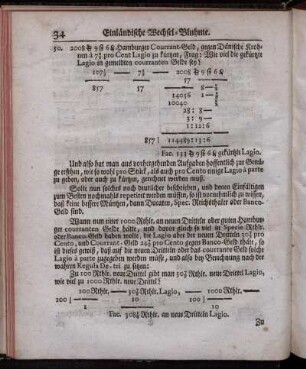 34 Einländische Wechsel-Bluhme.
50. 2008 9 6 Hamburger Courrent-Geld, gegen Dänische Kroh-
nen à 7 pro Cent Lagio zu kürtzen, Frag: Wie viel die gekürtzte
Lagio an gemeldten courranten Gelde sey?
857 17
14056
10040
28 : 8
3 : 9
1 : 12 : 6
857 | 114489 : 13 : 6
Fac. 133 9 6 gekürtzt Lagio.
Und also hat man aus vorhergehenden Aufgaben hoffentlich zur Genü-
ge ersehen, wie so wohl pro Stück, als auch pro Cento einige Lagio à parte
zu geben, oder auch zu kürtzen, geordnet werden muß.
Solte nun solches noch deutlicher beschrieben, und denen Einfältigen
zum Besten nochmahls repetiret werden müssen, so ist zuvorderst zu wissen,
daß keine besser Müntzen, dann Ducaten, Spec. Reichsthaler oder Banco-
Geld sind.
Wann nun einer 1000 Rthlr. an neuen Dritteln oder guten Hambur-
ger courranten Gelde hätte, und davon gleich so viel in Specie Rthlr.
oder Banco-Geld haben wollte, die Lagio aber der neuen Dritteln pro
Cento, und Courrant-Geld pro Cento gegen Banco-Geld thäte, so
ist dieses gewiß, daß auf die neuen Dritteln oder das courrante Geld solche
Lagio à parte zugegeben werden müsse, und also die Berechnung nach der
wahren Regula De-tri zu setzen:
Zu 100 Rthlr. neue Drittel gebt man Rthlr. neue Drittel Lagio,
wie viel zu 1000 Rthlr. neue Drittel?
100 Rthlr. Rthlr. Lagio, 1000 Rthlr.
100 10 100
1 10
Fac. Rthlr. an neue Dritteln Lagio.
Zu